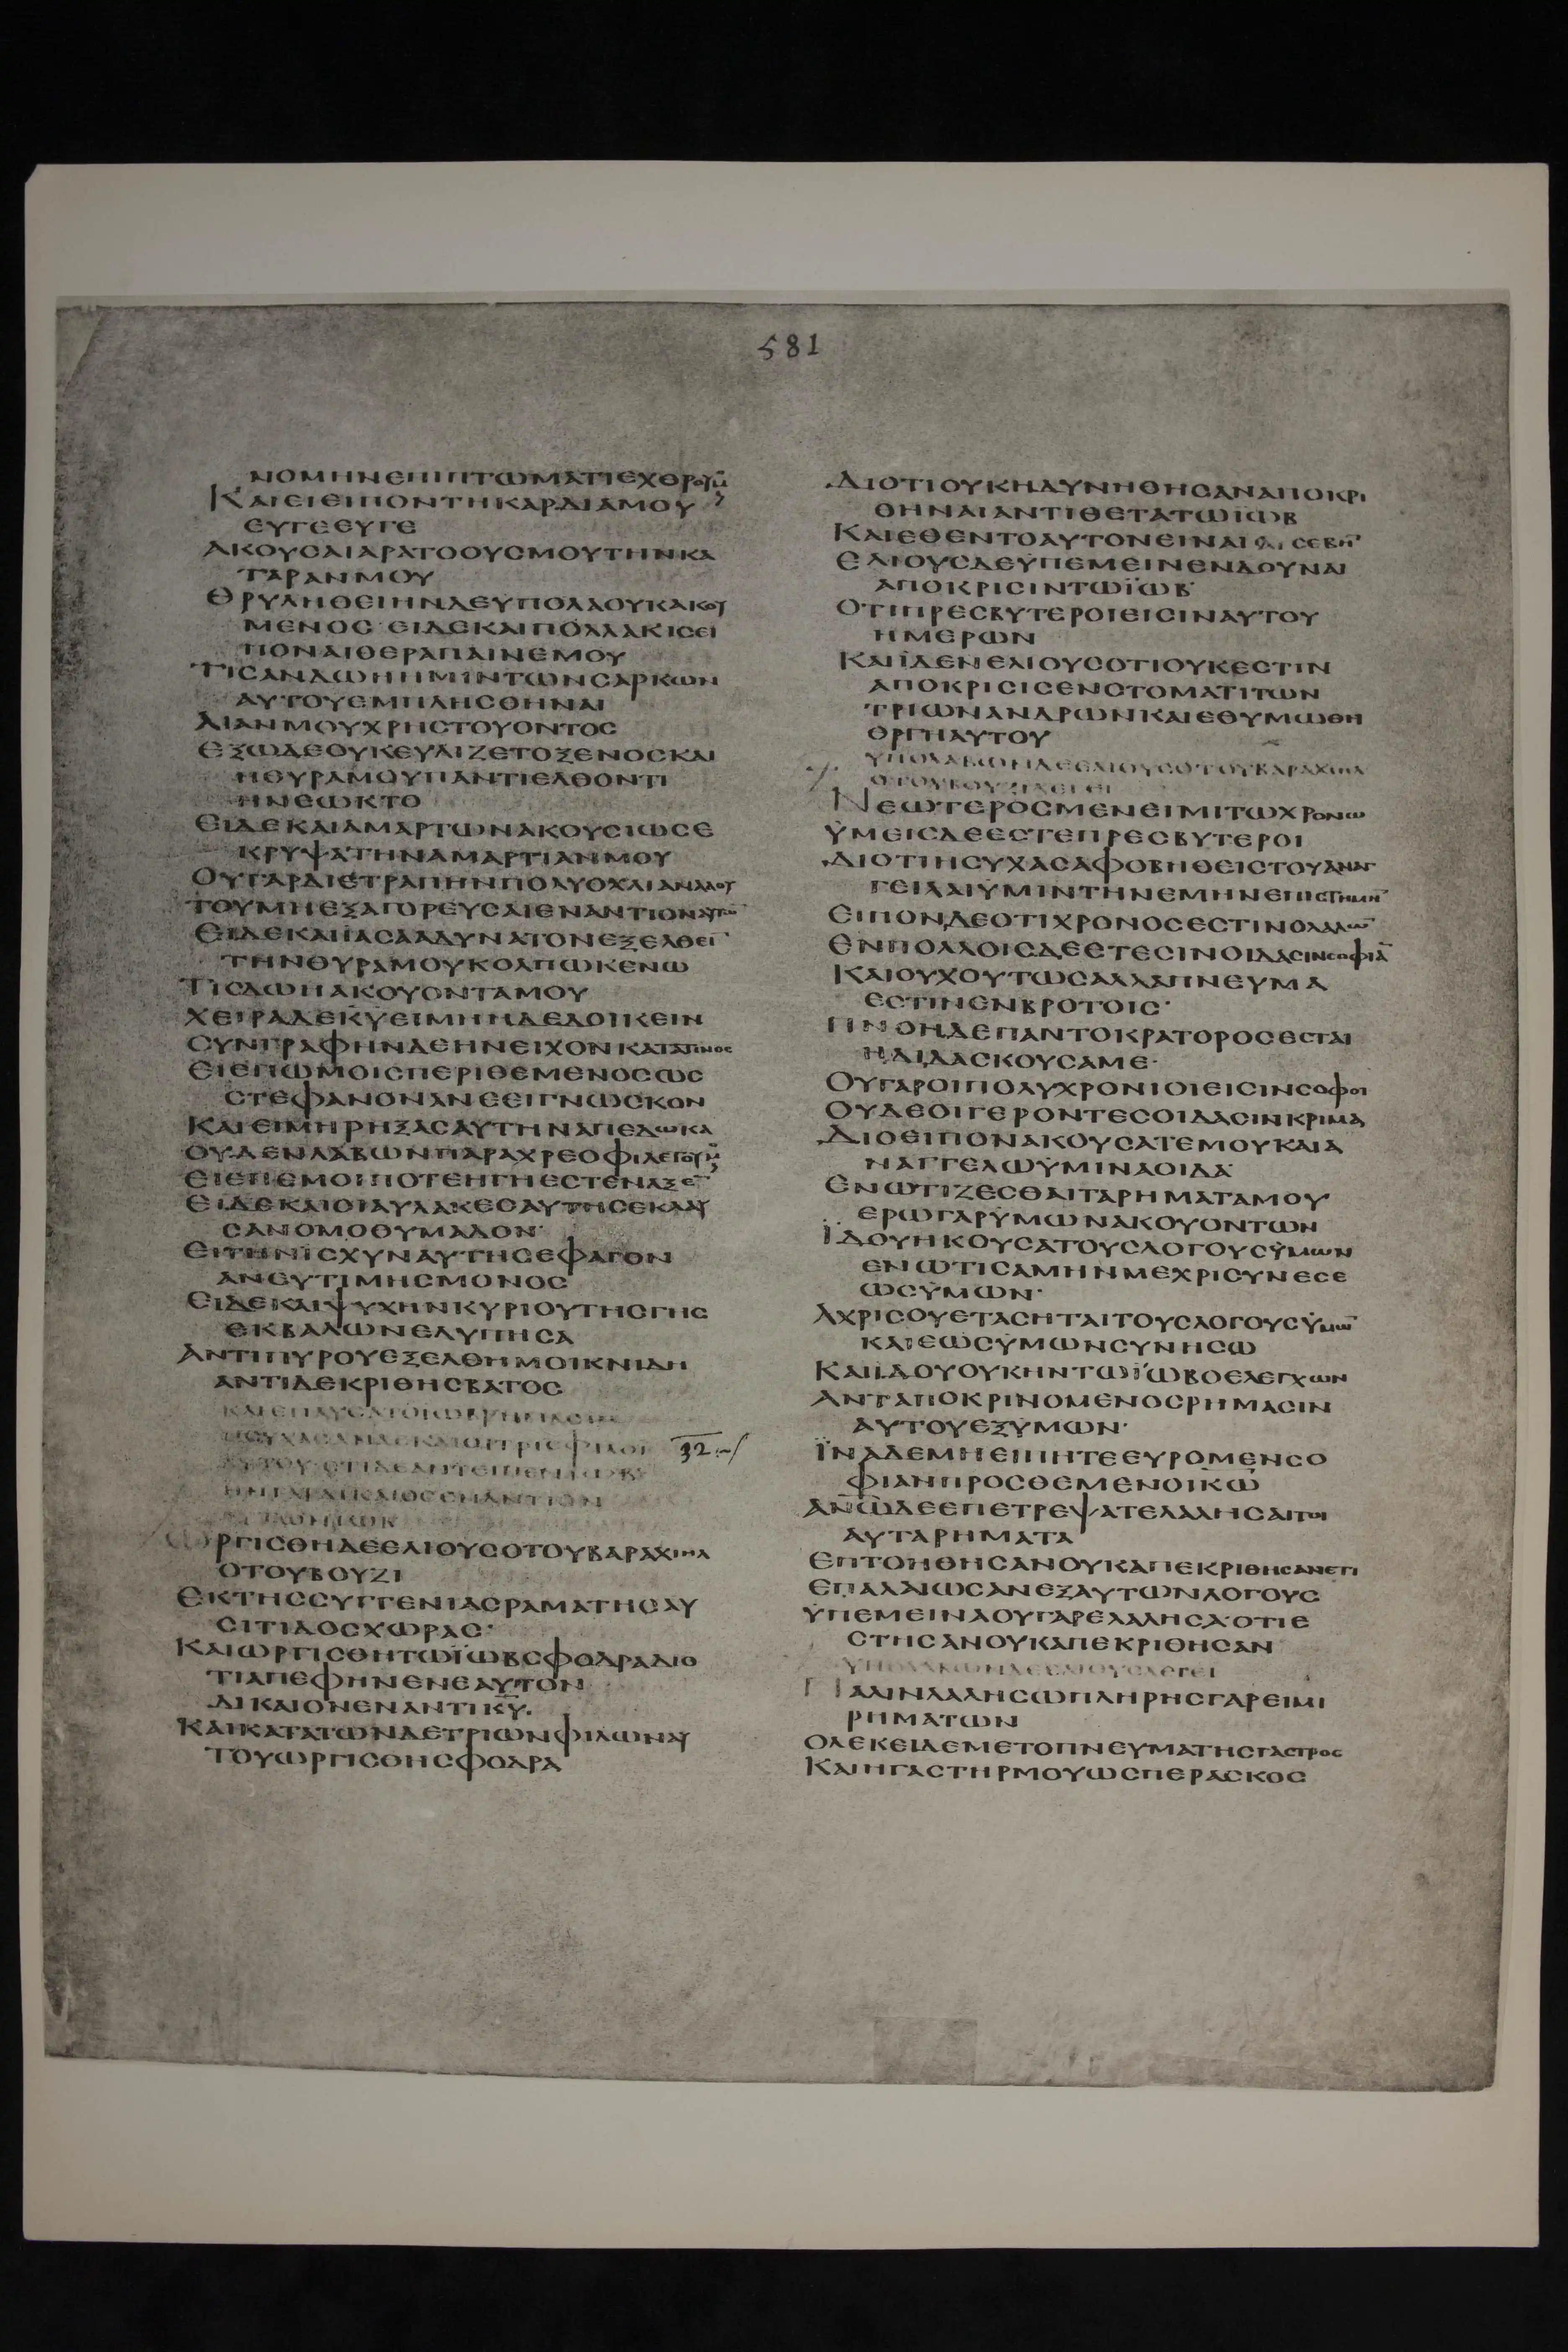 581
ΝΟΜΗΝΕΠΙΠΤΩΜΑΤΙΕΧΘΡΟΥΜ
ΚΑΙΕΙΕΙΠΟΝΤΗΚΑΡΔΙΑΜΟΥ
ΕΥΓΕΕΥΓΕ
ΑΚΟΥΣΑΙΑΡΑΤΟΟΥΣΜΟΥΤΗΝΚΑ
ΤΑΡΑΝΜΟΥ
ΘΡΥΛΗΘΕΙΗΝΔΕΥΠΟΛΑΟΥΚΑΚΟΥ
ΜΕΝΟΣ ΕΙΔΕΚΑΙΠΟΛΛΑΚΙΣΕΙ
ΠΟΝΑΙΘΕΡΑΠΑΙΝΕΜΟΥ
ΤΙΣΑΝΔΩΗΗΜΙΝΤΩΝΣΑΡΚΩΝ
ΑΥΤΟΥΕΜΠΛΗΣΘΗΝΑΙ
ΛΙΑΝΜΟΥΧΡΗΣΤΟΥΟΝΤΟΣ
ΕΞΩΔΕΟΥΚΕΥΛΙΖΕΤΟΞΕΝΟΣΚΑΙ
ΗΘΥΡΑΜΟΥΠΑΝΤΙΕΛΘΟΝΤΙ
ΗΝΕΩΚΤΟ
ΕΙΔΕΚΑΙΑΜΑΡΤΩΝΑΚΟΥΣΙΩΣΕ
ΚΡΥΨΑΤΗΝΑΜΑΡΤΙΑΝΜΟΥ
ΟΥΓΑΡΔΙΕΤΡΑΠΗΝΠΟΛΥΟΧΛΙΑΝΛΑΟΥ
ΤΟΥΜΗΕΞΑΓΟΡΕΥΣΑΙΕΝΑΝΤΙΟΝΑΥΤΩ̄
ΕΙΔΕΚΑΙΙΑΣΑΑΔΥΝΑΤΟΝΕΞΕΛΘΕῙ
ΤΗΝΘΥΡΑΜΟΥΚΟΛΠΩΚΕΝΩ
ΤΙΣΔΩΗΑΚΟΥΟΝΤΑΜΟΥ
ΧΕΙΡΑΔΕΚΥΕΙΜΗΗΔΕΔΟΙΚΕΙΝ
ΣΥΝΓΡΑΦΗΝΔΕΗΝΕΙΧΟΝΚΑΤΑΤΙΝΟΣ
ΕΙΕΠΩΜΟΙΣΠΕΡΙΘΕΜΕΝΟΣΩΣ
ΣΤΕΦΑΝΟΝΑΝΕΕΙΓΝΩΣΚΟΝ
ΚΑΙΕΙΜΗΡΗΞΑΣΑΥΤΗΝΑΠΕΔΩΚΑ
ΟΥΔΕΝΛΑΒΩΝΠΑΡΑΧΡΕΟΦΙΛΕΤΟΥΜ
ΕΙΕΠΕΜΟΙΠΟΤΕΗΓΗΕΣΤΕΝΑΞΕ̄
ΕΙΔΕΚΑΙΟΙΑΥΛΑΚΕΣΑΥΤΗΣΕΚΛΑΥ
ΣΑΝΟΜΟΘΥΜΑΔΟΝ·
ΕΙΤΗΝΙΣΧΥΝΑΥΤΗΣΕΦΑΓΟΝ
ΑΝΕΥΤΙΜΗΣΜΟΝΟΣ
ΕΙΔΕΚΑΙΨΥΧΗΝΚΥΡΙΟΥΤΗΣΓΗΣ
ΕΚΒΑΛΩΝΕΛΥΠΗΣΑ
ΑΝΤΙΠΥΡΟΥΕΞΕΛΘΗΜΟΙΚΝΙΔΗ
ΑΝΤΙΔΕΚΡΙΘΗΣΒΑΤΟΣ
ΚΑΙΕΠΑΥΣΑΤΟΙΩΒΡΗΜΑΣΙΝ
ΗΣΥΧΑΣΑΝΔΕΚΑΙΟΙΤΡΙΣΦΙΛΟΙ 32
ΑΥΤΟΥ ΕΤΙΔΕΑΝΤΕΙΠΕΝΙΩΒ
ΗΝΓΑΡΔΙΚΑΙΟΣΕΝΑΝΤΙΟΝ
ΩΡΓΙΣΘΗΔΕΕΛΙΟΥΣΟΤΟΥΒΑΡΑΧΙΗΛ
ΟΤΟΥΒΟΥΖΙ
ΕΚΤΗΣΣΥΓΓΕΝΙΑΣΡΑΜΑΤΗΣΑΥ
ΣΙΤΙΔΟΣΧΩΡΑΣ·
ΚΑΙΩΡΓΙΣΘΗΤΩΪΩΒΣΦΟΔΡΑΔΙΟ
ΤΙΑΠΕΦΗΝΕΝΕΑΥΤΟΝ
ΔΙΚΑΙΟΝΕΝΑΝΤΙΚ̄Ῡ.
ΚΑΙΚΑΤΑΤΩΝΔΕΤΡΙΩΝΦΙΛΩΝΑΥ
ΤΟΥΩΡΓΙΣΘΗΣΦΟΔΡΑ
ΔΙΟΤΙΟΥΚΗΔΥΝΗΘΗΣΑΝΑΠΟΚΡΙ
ΘΗΝΑΙΑΝΤΙΘΕΤΑΤΩΪΩΒ
ΚΑΙΕΘΕΝΤΟΑΥΤΟΝΕΙΝΑΙ ΣΕΒΗ̄
ΕΛΙΟΥΣΔΕΥΠΕΜΕΙΝΕΝΔΟΥΝΑΙ
ΑΠΟΚΡΙΣΙΝΤΩΪΩΒ·
ΟΤΙΠΡΕΣΒΥΤΕΡΟΙΕΙΣΙΝΑΥΤΟΥ
ΗΜΕΡΩΝ
ΚΑΙΪΔΕΝΕΛΙΟΥΣΟΤΙΟΥΚΕΣΤΙΝ
ΑΠΟΚΡΙΣΙΣΕΝΣΤΟΜΑΤΙΤΩΝ
ΤΡΙΩΝΑΝΔΡΩΝΚΑΙΕΘΥΜΩΘΗ
ΟΡΓΗΑΥΤΟΥ
ΥΠΟΛΑΒΩΝΔΕΕΛΙΟΥΣΟΤΟΥΒΑΡΑΧΙΗΛ
ΟΤΟΥΒΟΥΖΙΛΕΓΕΙ
ΝΕΩΤΕΡΟΣΜΕΝΕΙΜΙΤΩΧΡΟΝΩ
ΫΜΕΙΣΔΕΕΣΤΕΠΡΕΣΒΥΤΕΡΟΙ
ΔΙΟΤΙΗΣΥΧΑΣΑΦΟΒΗΘΕΙΣΤΟΥΑΝΑΓ
ΓΕΙΛΑΙΫΜΙΝΤΗΝΕΜΗΝΕΠΙΣΤΗΜΗ̄
ΕΙΠΟΝΔΕΟΤΙΧΡΟΝΟΣΕΣΤΙΝΟΛΑΛΩ̄
ΕΝΠΟΛΛΟΙΣΔΕΕΤΕΣΙΝΟΙΔΑΣΙΝΣΟΦΙᾹ
ΚΑΙΟΥΧΟΥΤΩΣΑΛΛΑΠΝΕΥΜΑ
ΕΣΤΙΝΕΝΒΡΟΤΟΙΣ·
ΠΝΟΗΔΕΠΑΝΤΟΚΡΑΤΟΡΟΣΕΣΤΑΙ
ΗΔΙΔΑΣΚΟΥΣΑΜΕ·
ΟΥΓΑΡΟΙΠΟΛΥΧΡΟΝΙΟΙΕΙΣΙΝΣΟΦΟΙ
ΟΥΔΕΟΙΓΕΡΟΝΤΕΣΟΙΔΑΣΙΝΚΡΙΜΑ
ΔΙΟΕΙΠΟΝΑΚΟΥΣΑΤΕΜΟΥΚΑΙΑ
ΝΑΓΓΕΛΩΫΜΙΝΑΟΙΔΑ·
ΕΝΩΤΙΖΕΣΘΑΙΤΑΡΗΜΑΤΑΜΟΥ
ΕΡΩΓΑΡΫΜΩΝΑΚΟΥΟΝΤΩΝ
ΪΔΟΥΗΚΟΥΣΑΤΟΥΣΛΟΓΟΥΣΫΜΩΝ
ΕΝΩΤΙΣΑΜΗΝΜΕΧΡΙΣΥΝΕΣΕ
ΩΣΫΜΩΝ·
ΑΧΡΙΣΟΥΕΤΑΣΗΤΑΙΤΟΥΣΛΟΓΟΥΣΫΜΩ̄
ΚΑΙΕΩΣΫΜΩΝΣΥΝΗΣΩ
ΚΑΙΙΔΟΥΟΥΚΗΝΤΩΪΩΒΟΕΛΕΓΧΩΝ
ΑΝΤΑΠΟΚΡΙΝΟΜΕΝΟΣΡΗΜΑΣΙΝ
ΑΥΤΟΥΕΞΫΜΩΝ·
ΪΝΑΔΕΜΗΕΙΠΗΤΕΕΥΡΟΜΕΝΣΟ
ΦΙΑΝΠΡΟΣΘΕΜΕΝΟΙΚΩ̄
ΑΝ̄Ω̄ΔΕΕΠΕΤΡΕΨΑΤΕΛΑΛΗΣΑΙΤΟΙ
ΑΥΤΑΡΗΜΑΤΑ
ΕΠΤΟΗΘΗΣΑΝΟΥΚΑΠΕΚΡΙΘΗΣΑΝΕΤΙ
ΕΠΑΛΑΙΩΣΑΝΕΞΑΥΤΩΝΛΟΓΟΥΣ
ΫΠΕΜΕΙΝΑΟΥΓΑΡΕΛΑΛΗΣΑ·ΟΤΙΕ
ΣΤΗΣΑΝΟΥΚΑΠΕΚΡΙΘΗΣΑΝ
ΥΠΟΛΑΒΩΝΔΕΕΛΙΟΥΣΛΕΓΕΙ
ΠΑΛΙΝΛΑΛΗΣΩΠΛΗΡΗΣΓΑΡΕΙΜΙ
ΡΗΜΑΤΩΝ
ΟΛΕΚΕΙΔΕΜΕΤΟΠΝΕΥΜΑΤΗΣΓΑΣΤΡΟΣ
ΚΑΙΗΓΑΣΤΗΡΜΟΥΩΣΠΕΡΑΣΚΟΣ